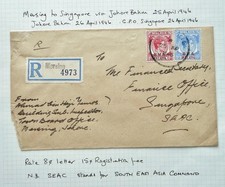 Mersing to Singapore via Johore Bahru 25 April 1946
Johore Bahru 26 April 1946 G.P.O. Singapore 26 April 1946
R
Mersing
4973
The Financial Secretary,
Finance Office
Singapore,
SEAC.
From
Town Board Office,
Mersing, Johore.
Rate 8¢ letter 15¢ Registration fee
NB SEAC stands for SOUTH EAST ASIA COMMAND